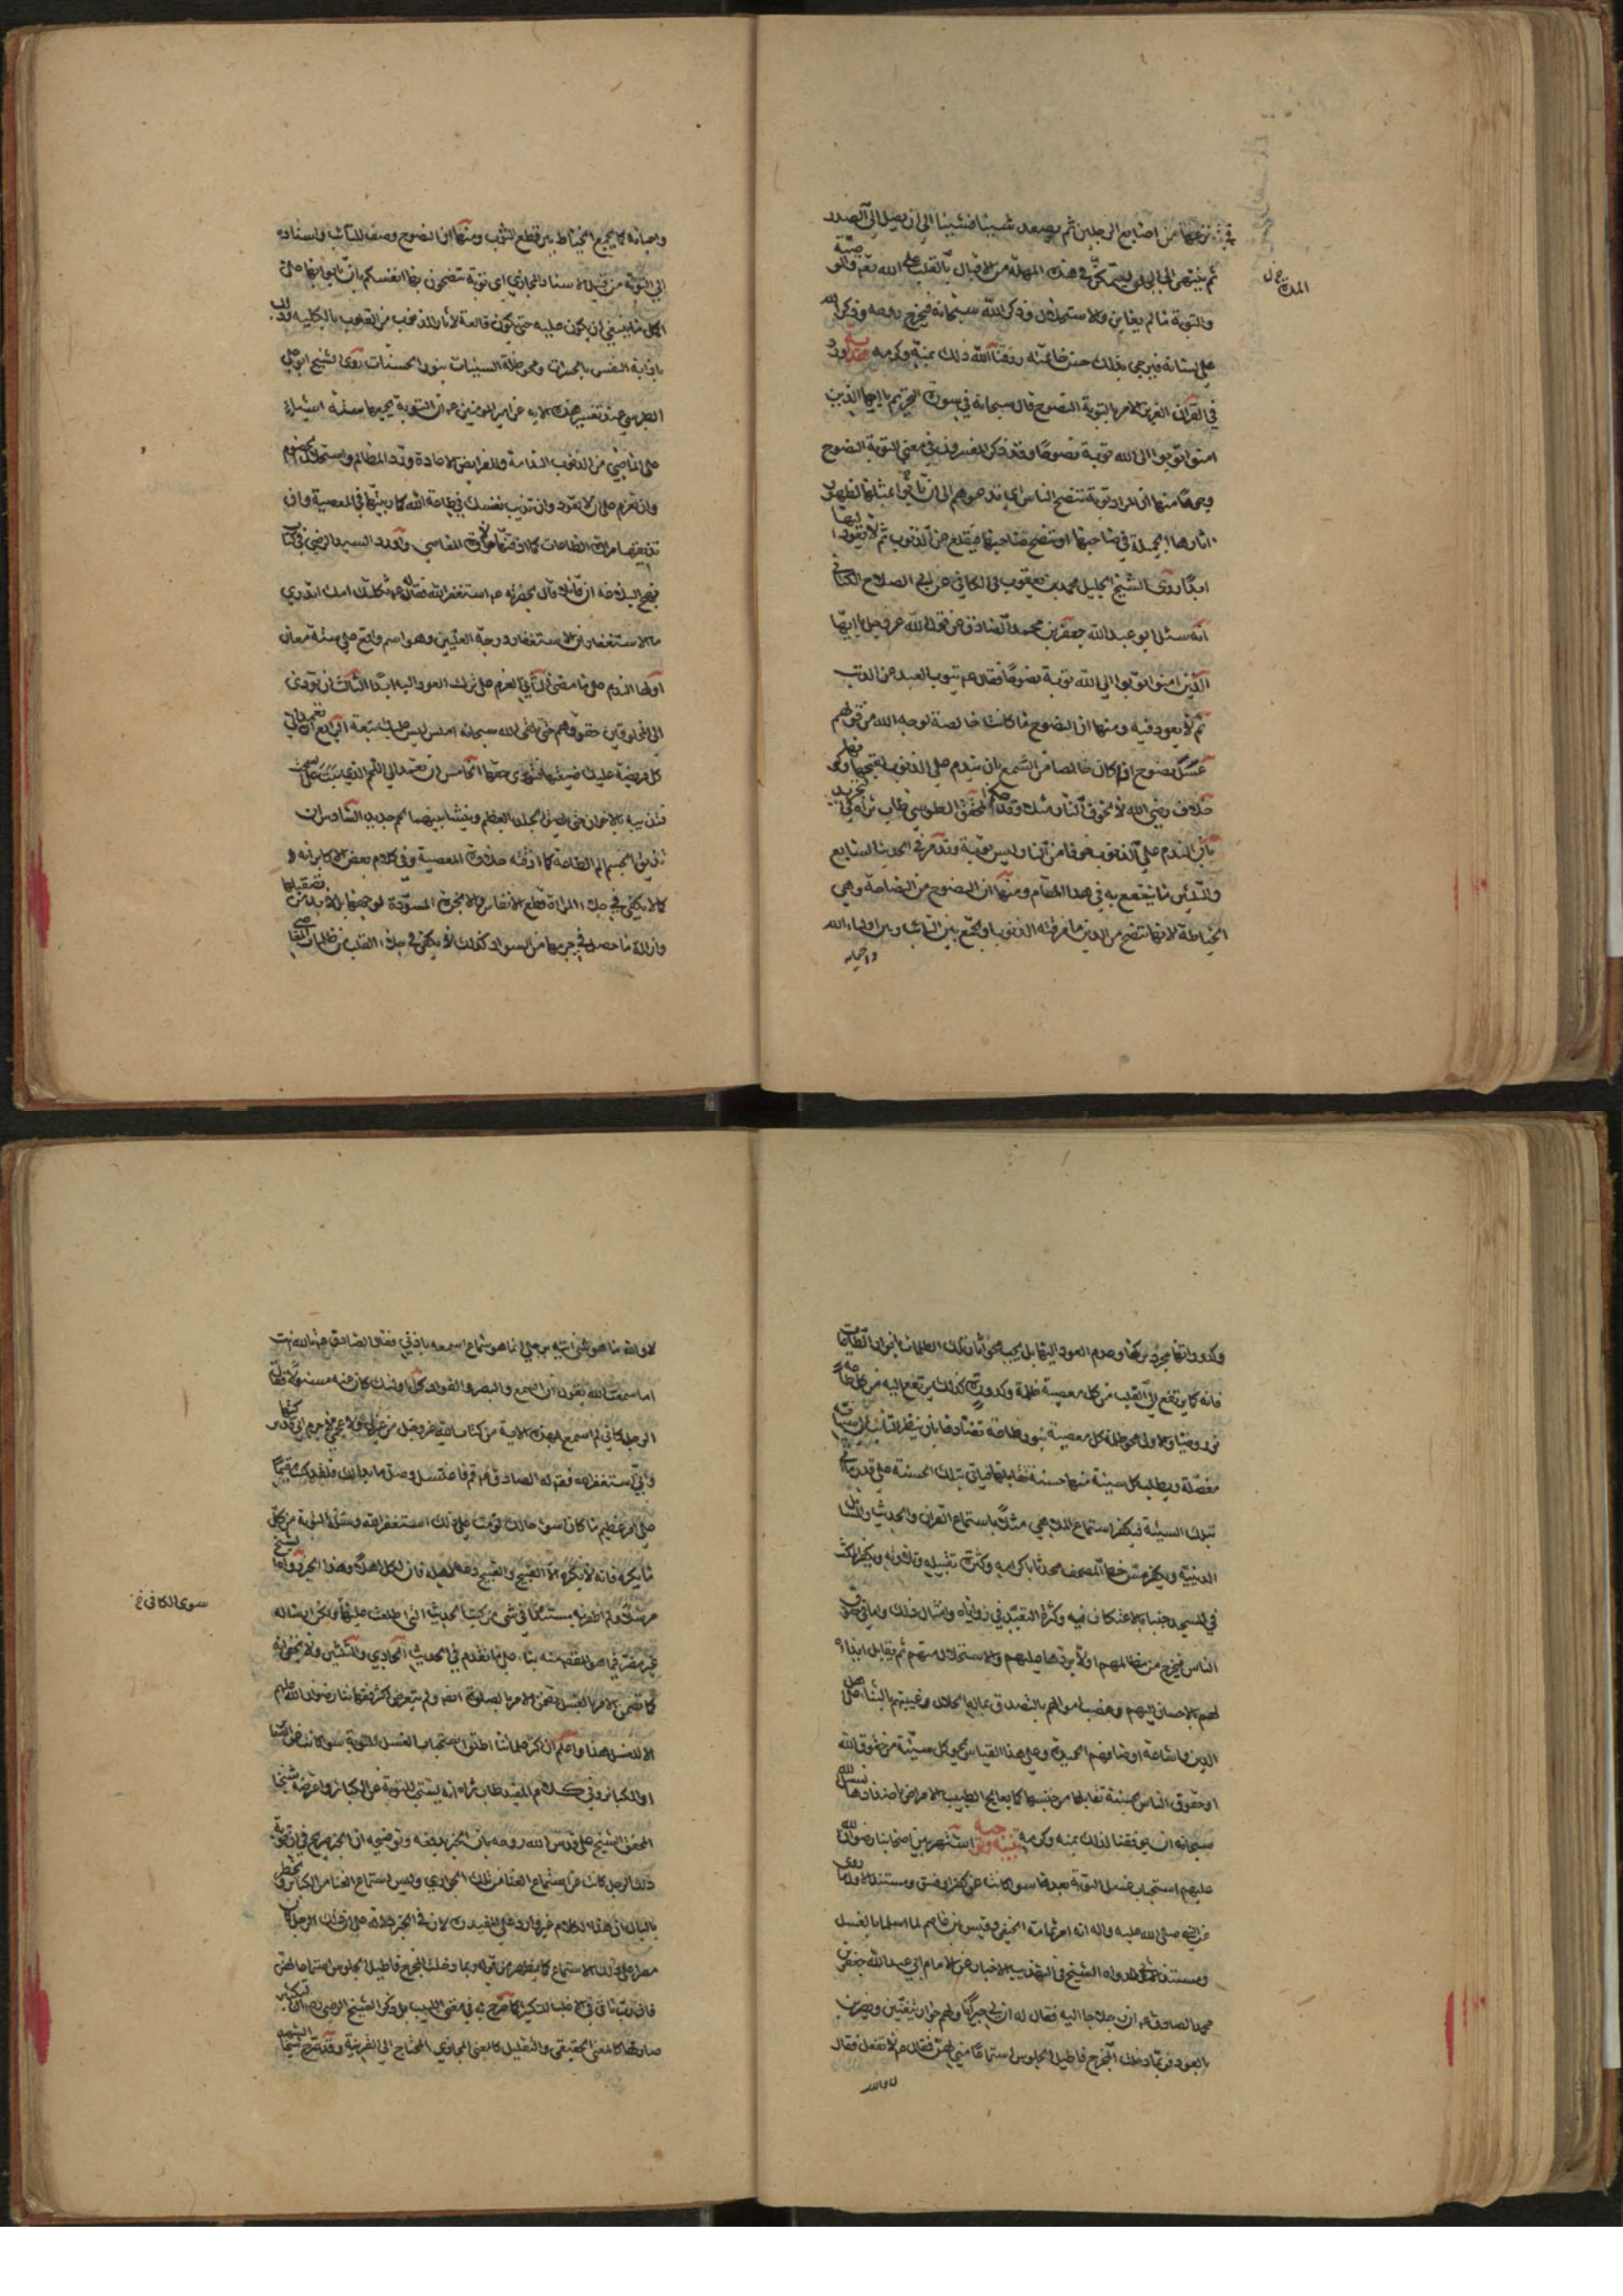 في نزعها من اصابع الرجلين ثم يصعد شيئا فشيئا الى ان يصل الى الصدر
ثم ينتهى الى الحلق ليتمكن في هذه المهلة من الاقبال بالقلب على الله تعالى والوصية
المدح ل
والتوبة ما لم يعاين والاستحلال وذكر الله سبحانه فيخرج روحه وذكر الله
على لسانه فيرجى بذلك حسن خاتمته رزقنا الله ذلك بمنه وكرمه ورد
في القرآن العزيز الامر بالتوبة النصوح قال سبحانه في سورة التحريم يا ايها الذين
امنوا توبوا الى الله توبة نصوحا وقد ذكر المفسرون في معنى التوبة النصوح
وجوها منها ان المراد توبة تنصح الناس اي تدعوهم الى ان ياتوا بمثلها لظهور
اثارها الجميلة في صاحبها او تنصح صاحبها فيقلع عن الذنوب ثم لا يعود اليها
ابدا روى الشيخ الجليل محمد بن يعقوب في الكافي عن ابي الصلاح الكناني
انه سئل ابو عبد الله جعفر بن محمد الصادق عن قول الله عز وجل يا ايها
الذين امنوا توبوا الى الله توبة نصوحا فقال هو يتوب العبد من الذنب
ثم لا يعود فيه ومنها ان النصوح ما كانت خالصة لوجه الله من قولهم
عسل نصوح اذا كان خالصا من الشمع بان يندم على الذنوب لقبحها وكونها
خلاف رضى الله لا لخوف النار مثلا وقد حكم المحقق الطوسي طاب ثراه في التجريد
بان الندم على الذنوب خوفا من النار ليس توبة وقد مر في الحديث السابع
والثلثين ما ينتفع به في هذا المقام ومنها ان النصوح من النصاحة وهي
الخياطة لانها تنصح من الدين ما مزقته الذنوب او يجمع بين التائب وبين اولياء الله
واحبائه
واحبائه كما يجمع الخياط بين قطع الثوب ومنها ان النصوح وصف للتائب واسناده
الى التوبة من قبيل الاسناد المجازي اى توبة تنصحون بها انفسكم بان تاتوا بها على
اكمل ما ينبغى ان يكون عليه حتى تكون قالعة لاثار الذنوب من القلوب بالكليه وذلك
باذابة النفس بالحسرات ومحو ظلمة السيئات بنور الحسنات روى الشيخ ابو على
الطبرسي عند تفسير هذه الاية عن امير المؤمنين ع ان التوبة يجمعها ستة اشياء
على الماضي من الذنوب الندامة وللفرايض الاعادة ورد المظالم واستحلال الخصوم
وان تعزم على ان لا تعود وان تذيب نفسك في طاعة الله كما ربيتها في المعصية وان
تذيقها مرارة الطاعات كما اذقتها حلاوة المعاصي واورد السيد الرضي في كتاب
نهج البلاغة ان قائلا قال بحضرته ع استغفر الله فقال له ع ثكلتك امك اتدري
ما الاستغفار ان الاستغفار درجة العليين وهو اسم واقع على ستة معان
اولها الندم على ما مضى الثاني العزم على ترك العود اليه ابدا الثالث ان تؤدي
الى المخلوقين حقوقهم حتى تلقى الله سبحانه املس ليس عليك تبعة الرابع ان تعمد الى
كل فريضة عليك ضيعتها فتؤدى حقها الخامس ان تعمد الى اللحم الذي نبت على السحت
فتذيبه بالاحزان حتى تلصق الجلد بالعظم وينشأ بينهما لحم جديد السادس ان
تذيق الجسم الم الطاعة كما اذقته حلاوة المعصية وفي كلام بعض الاكابر انه
كما لا يكفى في جلاء المرآة قطع الانفاس والابخرة المسودة لوجهها بل لا بد من تصقيلها
وازالة ما حصل في جرمها من السواد كذلك لا يكفى في جلاء القلب من ظلمات المعاصي
وكدوراتها مجرد تركها وعدم العود اليها بل يجب محو اثار تلك الظلمات بانوار الطاعات
فانه كما يرتفع الى القلب من كل معصية ظلمة وكدورة كذلك يرتفع اليه من كل طاعة
نور وضياء والاولى محو ظلمة كل معصية بنور طاعة تضادها بان ينظر التائب الى سيئاته
مفصلة ويطلب لكل سيئة منها حسنة تقابلها فياتى بتلك الحسنة على قدر ما اتى
بتلك السيئة فيكفر استماع الملاهي مثلا باستماع القرآن والحديث والمسائل
الدينية ويكفر مس خط المصحف محدثا باكرامه وكثرة تقبيله وتلاوته ويكفر المكث
في المسجد جنبا بالاعتكاف فيه وكثرة التعبد في زواياه وامثال ذلك واما في حقوق
الناس فيخرج من مظالمهم اولا بردها عليهم والاستحلال منهم ثم يقابل ايذاءه
لهم بالاحسان اليهم وغصب اموالهم بالتصدق بماله الحلال وغيبتهم بالثناء على اهل
الدين واشاعة اوصافهم الحميدة وعلى هذا القياس يمحو كل سيئة من حقوق الله
او حقوق الناس بحسنة تقابلها من جنسها كما يعالج الطبيب الامراض باضدادها نسئل الله
سبحانه ان يوفقنا لذلك بمنه وكرمه اشتهر بين اصحابنا رضوان الله
عليهم استحباب غسل التوبة بعدها سواء كانت عن كفر او فسق ومستند الاول ما روى
عن النبي صلى الله عليه واله انه امر ثمامة الحنفي وقيس بن عاصم لما اسلما بالغسل
ومستند الثاني ما رواه الشيخ في التهذيب الاخبار عن الامام ابي عبد الله جعفر بن
محمد الصادق ع ان رجلا جاء اليه فقال له ان لي جيرانا ولهم جوار يتغنين ويضربن
بالعود فربما دخلت المخرج فاطيل الجلوس استماعا مني لهن فقال ع لا تفعل فقال
لا والله
لا والله ما هو شئ اتيه برجلي انما هو سماع اسمعه باذني فقال الصادق ع تالله انت
اما سمعت الله يقول ان السمع والبصر والفؤاد كل اولئك كان عنه مسئولا فقال
الرجل كاني لم اسمع بهذه الاية من كتاب الله عز وجل من عربي ولا عجمي لا جرم اني قد تركتها
وانى استغفر الله فقال له الصادق ع قم فاغتسل وصل ما بدا لك فلقد كنت مقيما
على امر عظيم ما كان اسوء حالك لو مت على ذلك استغفر الله واسئله التوبة من كل
ما يكره فانه لا يكره الا القبيح والقبيح دعه لاهله فان لكل اهلا وهذا الخبر رواه الشيخ
مرسلا ولم اظفر به مسندا في شئ من كتب الحديث التي اطلعت عليها ولكن ارساله
سوى الكافي
غير مضر فيما هو المقصد منه بناء على ما تقدم في الحديث الحادي والثلثين ولا يخفى انه
كما تضمن الامر بالغسل تضمن الامر بالصلوة ايضا ولم يتعرض اكثر فقهائنا رضوان الله عليهم
الا للغسل هذا واعلم ان اكثر علمائنا اطلقوا استحباب الغسل للتوبة سواء كانت عن الصغائر
او الكبائر وفي كلام المفيد طاب ثراه انه يستحب للتوبة عن الكبائر واعترضه شيخنا
المحقق الشيخ على قدس الله روحه بان الخبر يدفعه وتوضيحه ان الخبر صريح في ان توبة
ذلك الرجل كانت عن استماع الغنا من تلك الجواري وليس استماع الغنا من الكبائر ويخطر
بالبال ان هذا الكلام غير وارد على المفيد ره لان في الخبر دلالة على ان ذلك الرجل كان
مصرا على ذلك الاستماع كما يظهر من قوله ربما دخلت المخرج فاطيل الجلوس استماعا لهن
فان ربما تاتى في الاغلب للتكثير كما صرح به في مغنى اللبيب بل ذكر الشيخ الرضى ره ان التكثير
صار لها كالمعنى الحقيقى والتقليل كالمعنى المجازي المحتاج الى القرينة وقد صرح شيخنا الشهيد